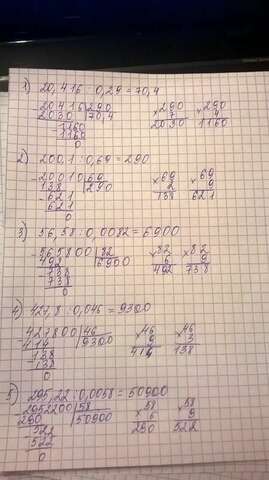 1) 20,416 : 0,29 = 70,4
20416 | 290 × 290 × 290
2030 | 70,4 7 4
1160 2030 1160
1160
0
2) 200,1 : 0,69 = 290
20010 | 69 × 69 × 69
138 | 290 2 9
621 138 621
621
0
3) 56,58 : 0,0082 = 6900
565800 | 82 × 82 × 82
492 | 6900 6 9
738 492 738
738
0
4) 427,8 : 0,046 = 9300
427800 | 46 × 46 × 46
414 | 9300 9 3
138 414 138
138
0
5) 295,22 : 0,0058 = 50900
2952200 | 58 × 58 × 58
290 | 50900 5 9
522 290 522
522
0